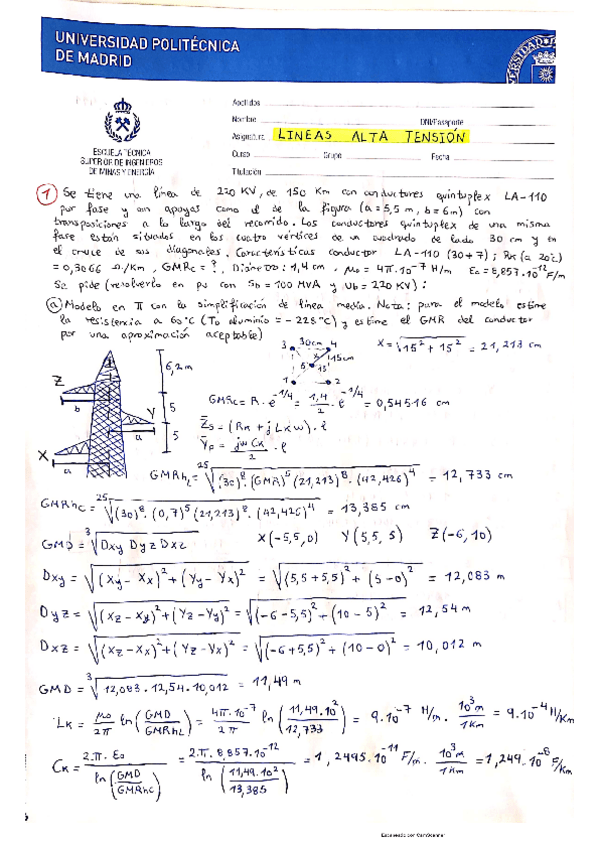 UNIVERSIDAD POLITÉCNICA
DE MADRID
Apellidos
Nombre DNI/Pasaporte
Asignatura LINEAS ALTA TENSIÓN
Curso Grupo Fecha
Titulación
ESCUELA TÉCNICA
SUPERIOR DE INGENIEROS
DE MINAS Y ENERGÍA
① Se tiene una línea de 220 KV, de 150 Km con conductores quintuplex LA-110
por fase y con apoyos como el de la figura (a=5,5 m, b=6m) con
transposiciones a lo largo del recorrido. Los conductores quintuplex de una misma
fase están situados en los cuatro vértices de un cuadrado de lado 30 cm y en
el cruce de sus diagonales. Características conductor LA-110 (30+7); Rk (a 20ºC)
= 0,3066 Ω/Km, GMRc = ?, Diámetro: 1,4 cm. μo = 4π·10⁻⁷ H/m Eo = 8,857·10⁻¹² F/m
Se pide (resolverlo en pu con Sb = 100 MVA y Ub = 220 KV):
ⓐ Modelo en π con la simplificación de línea media. Nota: para el modelo estime
la resistencia a 60ºC (To aluminio = -228ºC) y estime el GMR del conductor
por una aproximación aceptable)
3 30cm 4
x 15cm
5 15
1 2
X = √(15² + 15²) = 21,213 cm
6,2m
Z
b
5
Y
a
5
X
a
GMRc = R · e^(-1/4) = 1,4/2 · e^(-1/4) = 0,54516 cm
Z̄s = (Rk + jLkω) · l
Ȳp = jωCk/2 · l
GMRhL = ²⁵√((30)⁸ · (GMR)⁵ (21,213)⁸ · (42,426)⁴) = 12,733 cm
GMRhC = ²⁵√((30)⁸ · (0,7)⁵ (21,213)⁸ · (42,426)⁴) = 13,385 cm
GMD = ³√(Dxy Dyz Dxz) X(-5,5, 0) Y(5,5, 5) Z(-6, 10)
Dxy = √((Xy - Xx)² + (Yy - Yx)²) = √((5,5+5,5)² + (5-0)²) = 12,083 m
Dyz = √((Xz - Xy)² + (Yz - Yy)²) = √((-6-5,5)² + (10-5)²) = 12,54 m
Dxz = √((Xz - Xx)² + (Yz - Yx)²) = √((-6+5,5)² + (10-0)²) = 10,012 m
GMD = ³√(12,083 · 12,54 · 10,012) = 11,49 m
Lk = μo/2π ln(GMD/GMRhL) = 4π·10⁻⁷/2π ln(11,49·10²/12,733) = 9·10⁻⁷ H/m · 10³m/1km = 9·10⁻⁴ H/Km
Ck = 2·π·Eo/ln(GMD/GMRhC) = 2·π·8,857·10⁻¹²/ln(11,49·10²/13,385) = 1,2495·10⁻¹¹ F/m · 10³m/1km = 1,249·10⁻⁸ F/Km
Escaneado con CamScanner